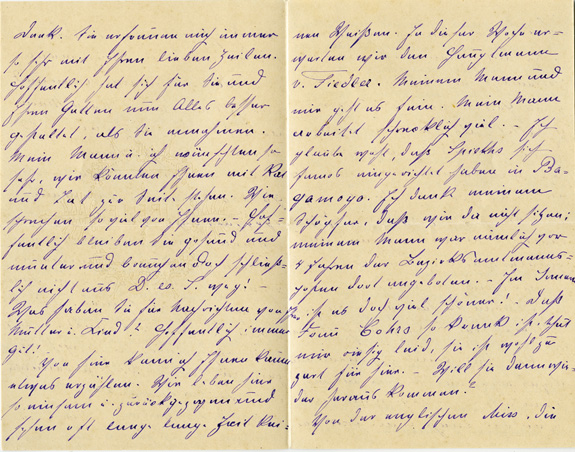 Dank. Sie erfreuen mich immer
so sehr mit Ihren lieben Zeilen.
Hoffentlich hat sich für Sie und
Ihren Gatten nun Alles besser
gestaltet, als Sie annahmen.
Mein Mann u. ich wünschten so
sehr, wir könnten Ihnen mit Rat
und Tat zur Seite stehen. Wir
sprechen so viel von Ihnen. – Hof-
fentlich bleiben Sie gesund und
munter und brauchen doch schließ-
lich nicht aus D. es. S. weg! –
Was haben Sie für Nachrichten von
Mutter u. Kind? Hoffentlich immer
gut!
Von hier kann ich Ihnen kaum
etwas erzählen. Wir leben hier
so einsam u. zurückgezogen und
sehen oft lange lange Zeit kei-
nen Weißen. In dieser Woche er-
warten wir den Hauptmann
v. Fiedler. Meinem Mann und
mir geht es fein. Mein Mann
arbeitet schrecklich viel. – Ich
glaube wohl, daß Spieths sich
famos eingerichtet haben in Ba-
gamoyo. Ich dank meinem
Schöpfer, daß wir da nicht sitzen;
meinem Mann war nämlich vor
4 Jahren der Bezirksamtmanns-
posten dort angeboten. – Im Innern
ist es doch viel schöner! – Daß
Frau Cohrs so krank ist, tut
mir riesig leid, sie ist wohl zu
zart für hier. – Will sie denn wie-
der heraus kommen?
Von der englischen Miss, die